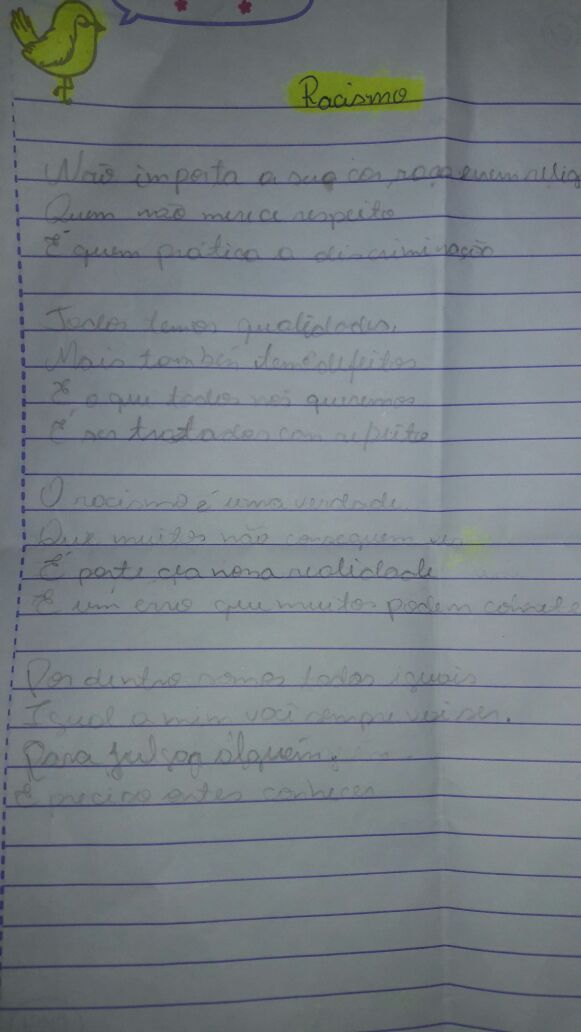 Racismo
Não importa a sua cor, raça e nem relig
Quem não merece respeito
É quem prática a discriminação
Todos temos qualidades,
Mais também temos defeitos
E o que todos nós queremos
É ser tratados com respeito
O racismo é uma verdade
Que muitos não conseguem ver
É parte da nossa realidade
E um erro que muitos podem comete
Por dentro somos todos iguais
Igual a mim você sempre vai ser.
Para julgar álguém.
É preciso antes conhecer